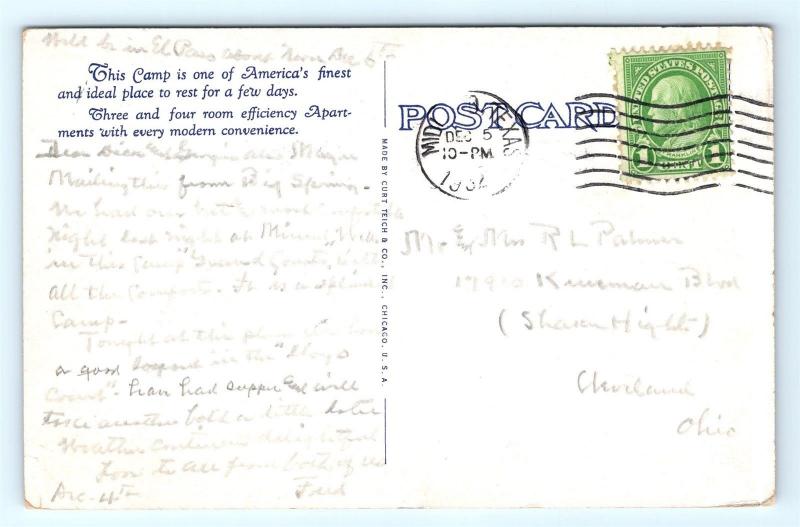 Will be in El Paso about noon Dec 6th
This Camp is one of America's finest
and ideal place to rest for a few days.
Three and four room efficiency Apart-
ments with every modern convenience.
Dear
Mailing this from Big Spring -
We had our
night last night at Mineral Wells
in this Camp "Grand Courts,
all the comforts. It is a splendid
Camp -
Tonight at this place
a good in the
Court" - have had supper and will
take another bath a little later
Weather continues delightful
Love to all from both of us
Dec. 4th Fred
MADE BY CURT TEICH & CO., INC., CHICAGO, U.S.A.
POST CARD
TEXAS
DEC 5
10-PM
UNITED STATES POSTAGE
FRANKLIN
1 1
Mr & Mrs R L Palmer
Kinsman Blvd
(Shaker Hights)
Cleveland
Ohio